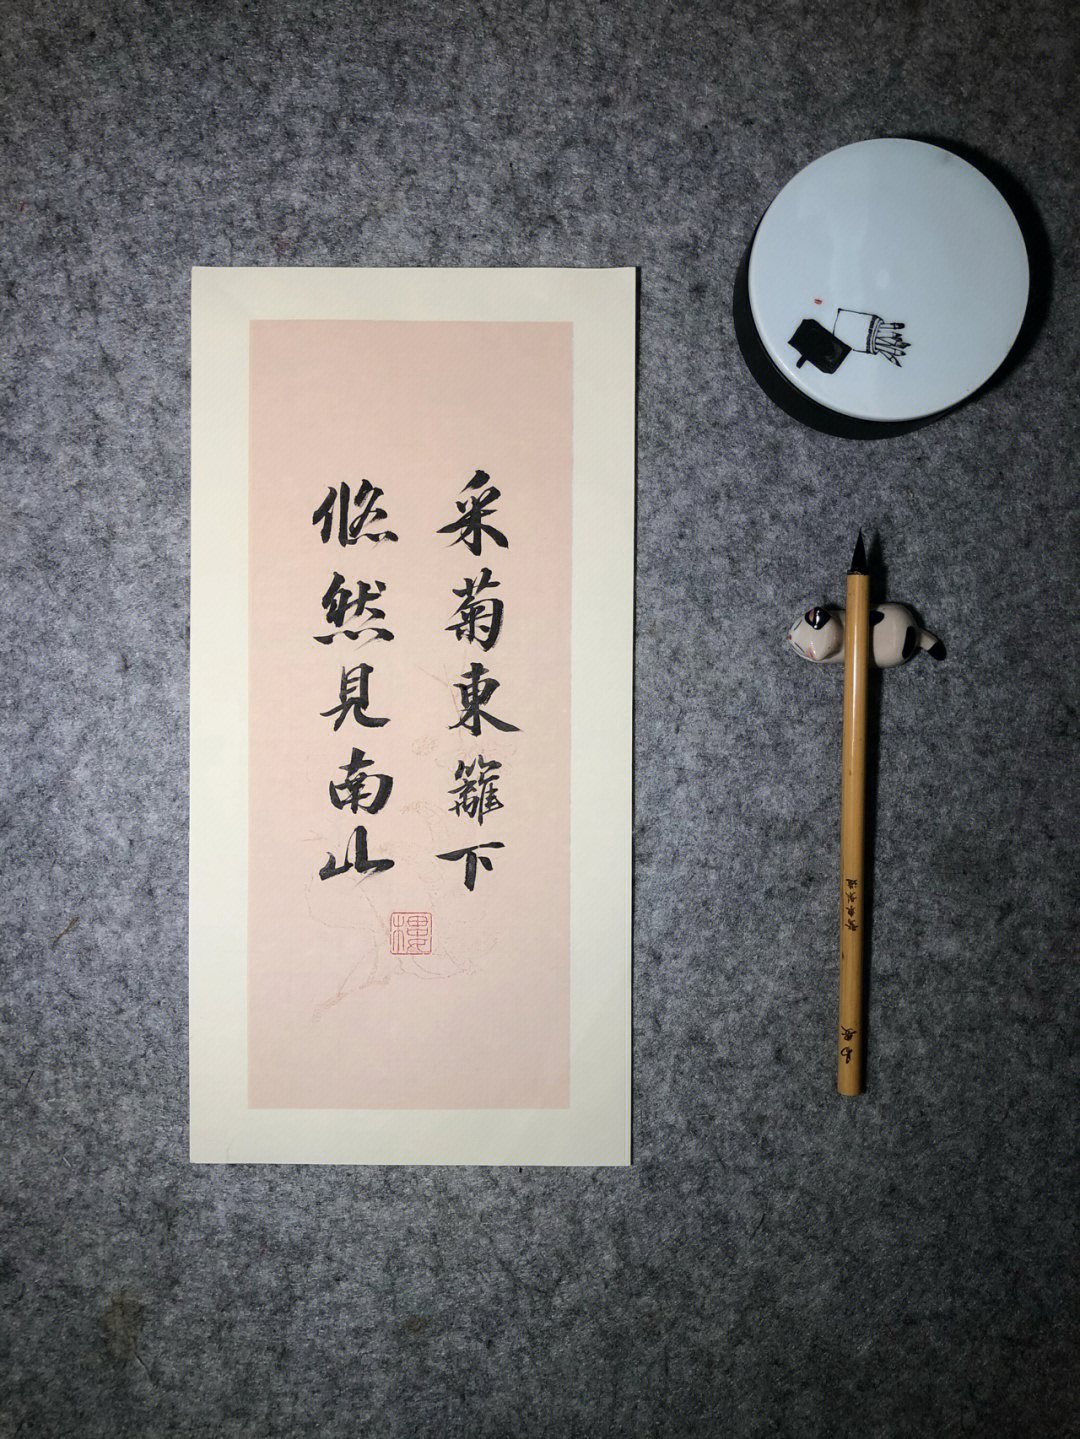 采菊東籬下
悠然見南山
樓